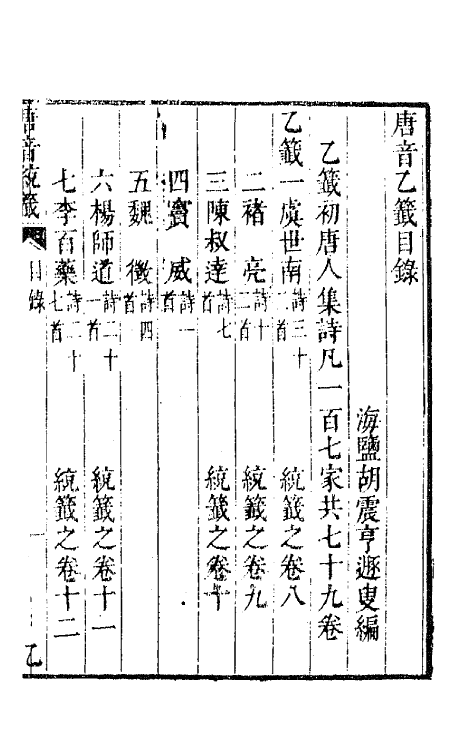 唐音乙籖目錄
海鹽胡震亨遯叟編
乙籖初唐人集詩凡一百七家共七十九卷
乙籖一虞世南詩三十二首 統籖之卷八
二褚亮詩十二首 統籖之卷九
三陳叔達詩七首 統籖之卷十
四竇威詩一首
五魏徵詩四首
六楊師道詩二十一首 統籖之卷十一
七李百藥詩二十七首 統籖之卷十二
唐音統籖 目錄 一 乙